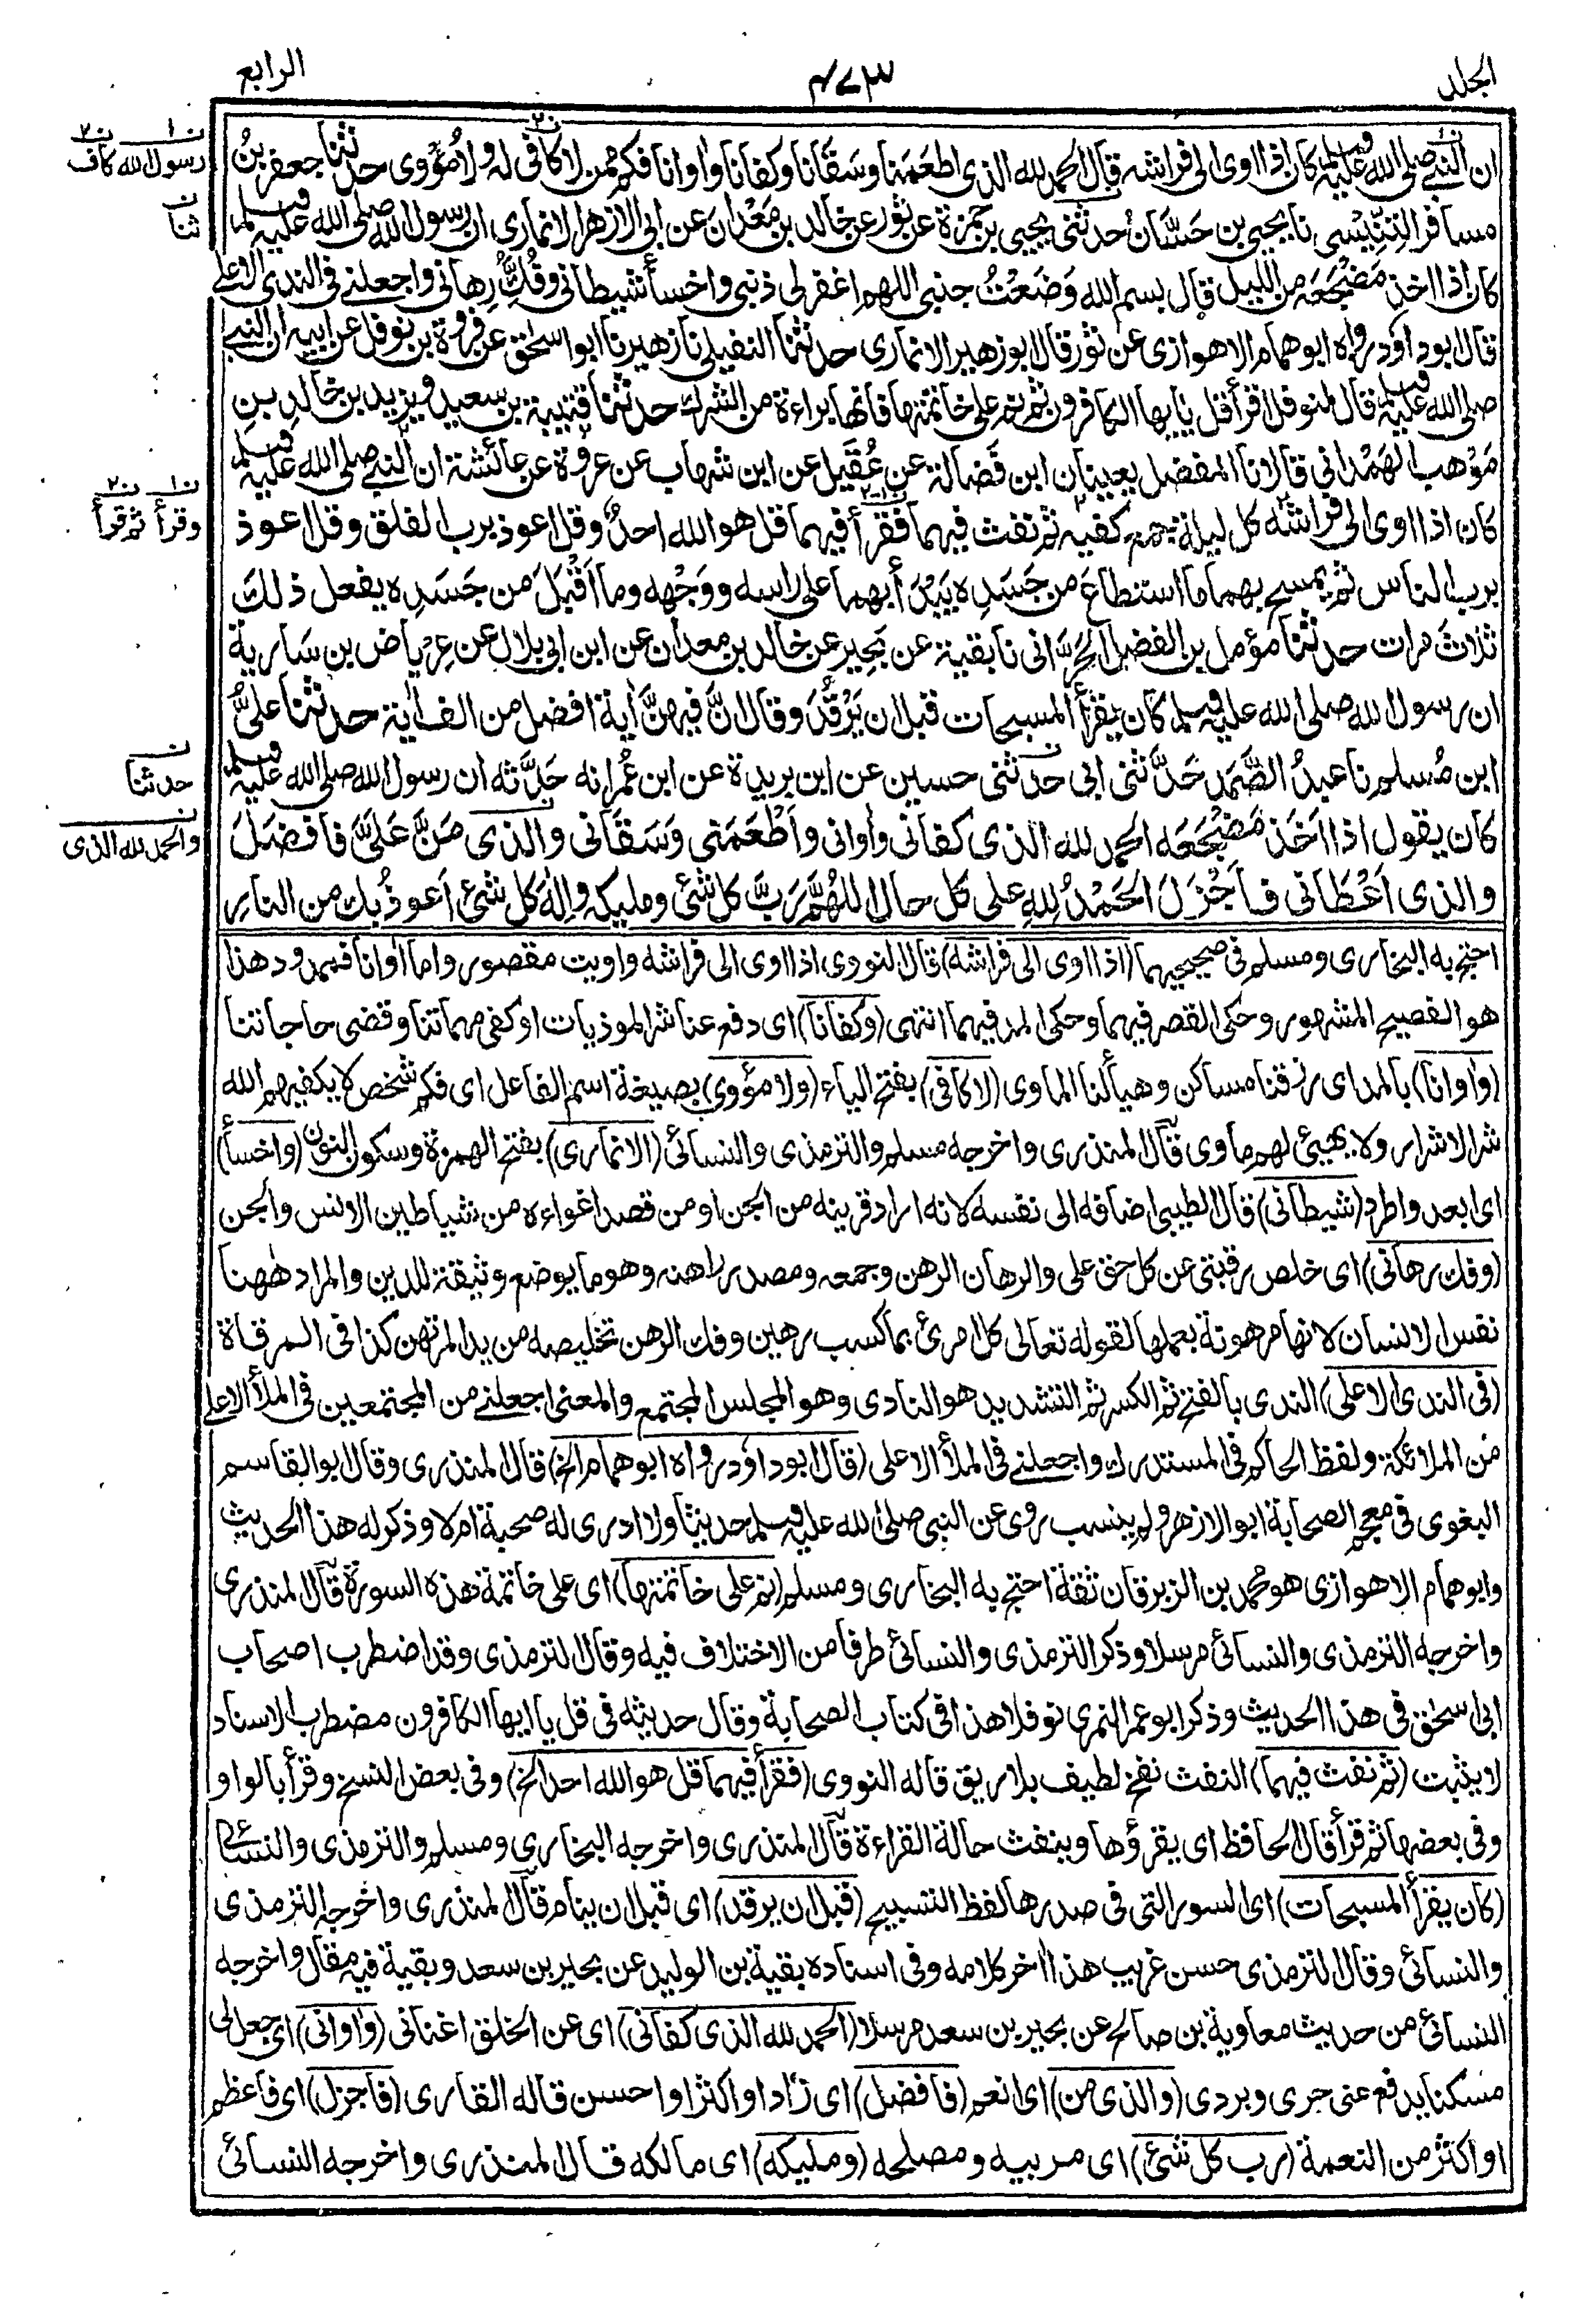 المجلد
٤٧٣
الرابع
ان النبي صلى الله عليه وسلم كان اذا اوى الى فراشه قال الحمد لله الذى اطعمنا وسقانا وكفانا واوانا فكم ممن لا كافى له ولا مؤوى حدثنا جعفر بن
مسافر التِنِّيسى نا يحيى بن حسّان حدثنى يحيى بن حمزة عن ثور عن خالد بن مَعْدانَ عن ابى الازهر الانمارى ان رسول الله صلى الله عليه وسلم
كان اذا اخذ مَضْجَعَه من الليل قال بسم الله وَضَعْتُ جنبى اللهم اغفر لى ذنبى واخسأ شيطانى وفُكَّ رِهانى واجعلنى فى الندى الاعلى
قال ابوداؤد رواه ابوهمام الاهوازى عن ثور قال ابوزهير الانمارى حدثنا النفيلى نا زهير نا ابو اسحٰق عن فروة بن نوفل عن ابيه ان النبى
صلى الله عليه وسلم قال لنوفل اقرأ قل يايها الكافرون ثم نم على خاتمتها فانها براءة من الشرك حدثنا قتيبة بن سعيد ويزيد بن خالدِ بنِ
مَوْهب الهَمْدانى قالا نا المفضل يعنيان ابن فَضالة عن عُقَيل عن ابن شهاب عن عروة عن عائشة ان النبى صلى الله عليه وسلم
كان اذا اوى الى فراشه كل ليلة جمع كفيه ثم نفث فيهما فقرأ فيهما قل هو الله احدٌ وقل اعوذ برب الفلق وقل اعوذ
برب الناس ثم يمسح بهما ما استطاعَ من جَسَدِه يَبْدَأ بهما على راسه ووَجْهه وما اَقْبَلَ من جَسَدِه يفعل ذلك
ثلاثَ مرات حدثنا مؤمل بن الفضل الحَرَّانى نا بقية عن بَحِير عن خالد بن معدان عن ابن ابى بلال عن عِرْباض بن سَارية
ان رسول الله صلى الله عليه وسلم كان يقرأ المسبحات قبل ان يَرْقُدَ وقال انَّ فيهنَّ اٰية افضل من الف اٰية حدثنا علىُّ
ابن مُسلم نا عبدُ الصَّمَد حَدَّثنى ابى حدثنى حسين عن ابن بريدة عن ابن عُمر انه حَدَّثه ان رسول الله صلى الله عليه وسلم
كان يقول اذا اَخَذ مَضْجَعَه الحمد لله الذى كفانى واٰوانى واَطْعَمَنى وَسَقَانى والذى مَنَّ عَلَىَّ فافضَلَ
والذى اَعْطَانى فاَجْزَلَ الحَمْدُ لِلهِ على كل حال اللهُمَّ رَبَّ كل شئ ومليكه واِلٰهَ كل شئ اَعوذُ بك من النارِ
ن١ ن٢
رسول الله كاف
ن
ثنا
ن١ ن٢
وقرأ ثم قرأ
ن
حدثنا
ن
والحمد لله الذى
احتج به البخارى ومسلم فى صحيحيهما (اذا اوى الى فراشه) قال النووى اذا اوى الى فراشه واويت مقصور واما اٰوانا فممدود هذا
هو الفصيح المشهور وحكى القصر فيهما وحكى المد فيهما انتهى (وكفانا) اى دفع عنا شر الموذيات او كفى مهماتنا وقضى حاجاتنا
(واٰوانا) بالمد اى رزقنا مساكن وهيأ لنا الماوى (لا كافى) بفتح الياء (ولا مؤوى) بصيغة اسم الفاعل اى فكم شخص لا يكفيهم الله
شر الاشرار ولا يهيئ لهم ماوى قال المنذرى واخرجه مسلم والترمذى والنسائى (الانمارى) بفتح الهمزة وسكون النون (واخسأ)
اى ابعد واطرد (شيطانى) قال الطيبى اضافه الى نفسه لانه اراد قرينه من الجن او من قصد اغواءه من شياطين الانس والجن
(وفك رهانى) اى خلص رقبتى عن كل حق على والرهان الرهن وجمعه ومصدر راهنه وهو ما يوضع وثيقة للدين والمراد ههنا
نفس الانسان لانها مرهونة بعملها لقوله تعالى كل امرئ بما كسب رهين وفك الرهن تخليصه من يد المرتهن كذا فى المرقاة
(فى الندى الاعلى) الندى بالفتح ثم الكسر ثم التشديد هو النادى وهو المجلس المجتمع والمعنى اجعلنى من المجتمعين فى الملأ الاعلى
من الملائكة ولفظ الحاكم فى المستدرك واجعلنى فى الملأ الاعلى (قال ابوداؤد رواه ابوهمام الخ) قال المنذرى وقال ابوالقاسم
البغوى فى معجم الصحابة ابوالازهر ولم ينسب روى عن النبى صلى الله عليه وسلم حديثا ولا ادرى له صحبة ام لا وذكر له هذا الحديث
وابوهمام الاهوازى هو محمد بن الزبرقان ثقة احتج به البخارى ومسلم (نم على خاتمتها) اى على خاتمة هذه السورة قال المنذرى
واخرجه الترمذى والنسائى مرسلا وذكر الترمذى والنسائى طرفا من الاختلاف فيه وقال الترمذى وقد اضطرب اصحاب
ابى اسحٰق فى هذا الحديث وذكر ابوعمر النمرى نوفلا هذا فى كتاب الصحابة وقال حديثه فى قل يا ايها الكافرون مضطرب الاسناد
لا يثبت (ثم نفث فيهما) النفث نفخ لطيف بلا ريق قاله النووى (فقرأ فيهما قل هو الله احد الخ) وفى بعض النسخ وقرأ بالواو
وفى بعضها ثم قرأ قال الحافظ اى يقرؤها وينفث حالة القراءة قال المنذرى واخرجه البخارى ومسلم والترمذى والنسائى
(كان يقرأ المسبحات) اى السور التى فى صدرها لفظ التسبيح (قبل ان يرقد) اى قبل ان ينام قال المنذرى واخرجه الترمذى
والنسائى وقال الترمذى حسن غريب هذا اٰخر كلامه وفى اسناده بقية بن الوليد عن بحير بن سعد وبقية فيه مقال واخرجه
النسائى من حديث معاوية بن صالح عن بحير بن سعد مرسلا (الحمد لله الذى كفانى) اى عن الخلق اغنانى (واٰوانى) اى جعل لى
مسكنا يدفع عنى حرى وبردى (والذى من) اى انعم (فافضل) اى زاد او اكثر او احسن قاله القارى (فاجزل) اى فاعظم
او اكثر من النعمة (رب كل شئ) اى مربيه ومصلحه (ومليكه) اى مالكه قال المنذرى واخرجه النسائى